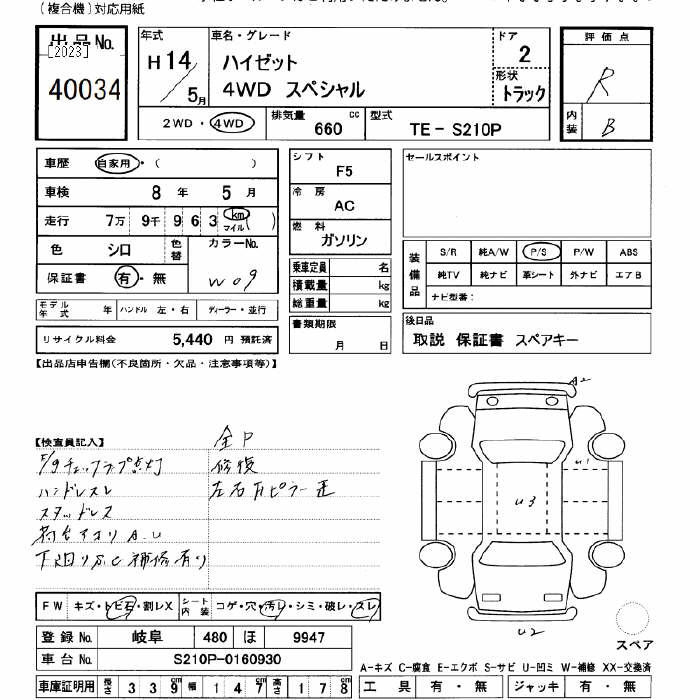 (複合機)対応用紙
出品No.
[2023]
40034
年式
H14/5月
車名・グレード
ハイゼット
4WD スペシャル
ドア
2
形状
トラック
2WD・4WD
排気量
660 cc
型式
TE-S210P
評価点
R
内装
B
車歴 自家用・( )
車検 8年 5月
走行 7万 9千 9 6 3 km マイル( )
色 シロ 色替 カラーNo.
保証書 有・無 W09
モデル年式 年 ハンドル 左・右 ディーラー・並行
リサイクル料金 5,440 円 預託済
シフト
F5
冷房
AC
燃料
ガソリン
乗車定員 名
積載量 kg
総重量 kg
書類期限
月 日
セールスポイント
装備品
S/R 純A/W P/S P/W ABS
純TV 純ナビ 革シート 外ナビ エアB
ナビ型番:
後日品
取説 保証書 スペアキー
【出品店申告欄(不良箇所・欠品・注意事項等)】
【検査員記入】
全P
修復
ハンドルスレ
スタッドレス
荷台アオリ A.U
下廻りS.C 補修有り
A2
U1
U3
U2
スペア
FW キズ・トビ石・割レX シート内装 コゲ・穴・汚レ・シミ・破レ・スレ
登録No. 岐阜 480 ほ 9947
車台No. S210P-0160930
車庫証明用 長さ 339cm 幅 147cm 高さ 178cm
A-キズ C-腐食 E-エクボ S-サビ U-凹ミ W-補修 XX-交換済
工具 有・無 ジャッキ 有・無